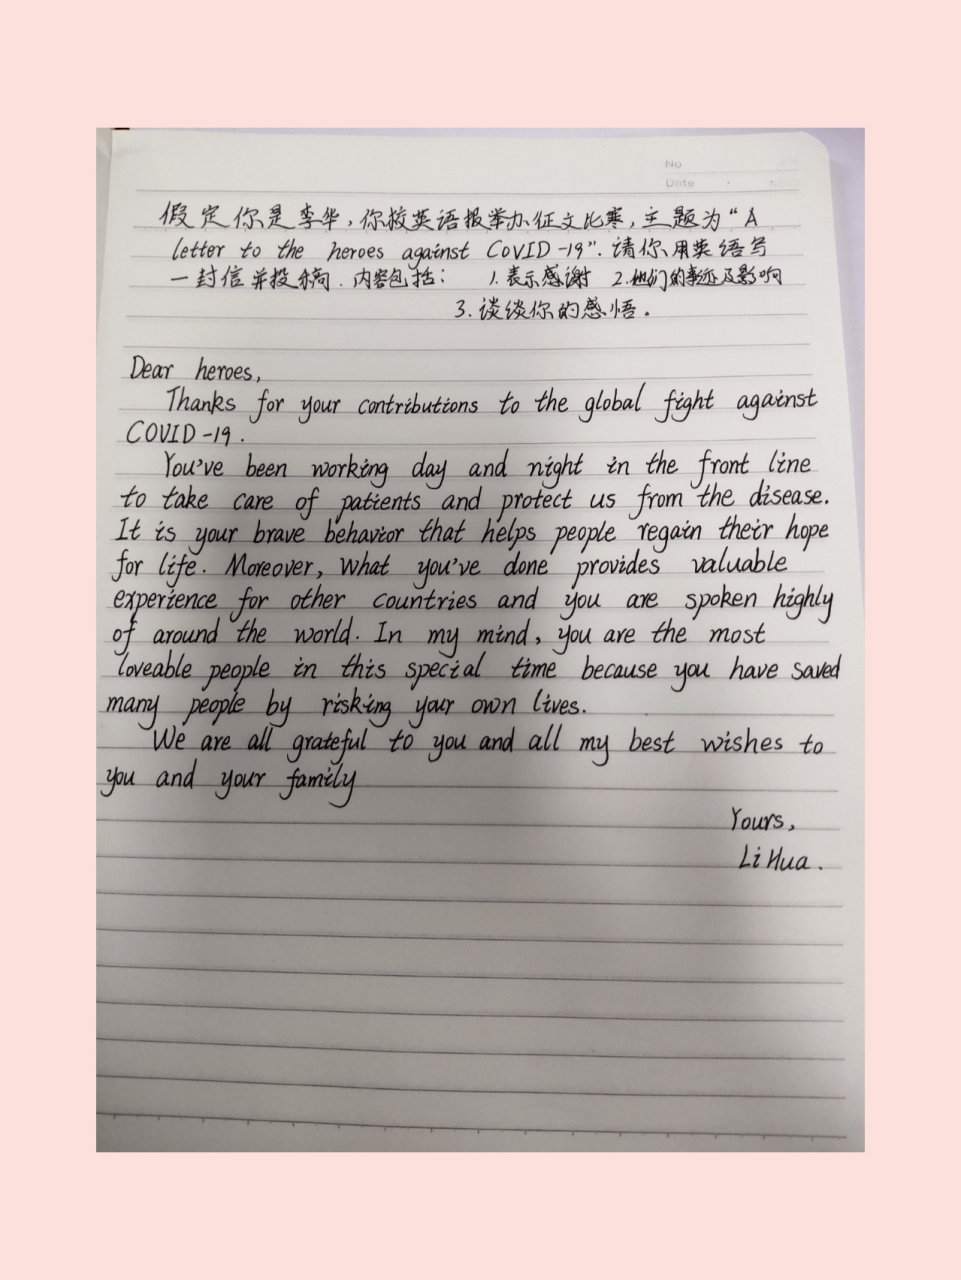 No
Date
假定你是李华,你校英语报举办征文比寒,主题为“A
letter to the heroes against COVID-19”. 请你用英语写
一封信并投稿. 内容包括: 1. 表示感谢 2. 他们的事迹及影响
3. 谈谈你的感悟.
Dear heroes,
Thanks for your contributions to the global fight against
COVID-19.
You've been working day and night in the front line
to take care of patients and protect us from the disease.
It is your brave behavior that helps people regain their hope
for life. Moreover, What you've done provides valuable
experience for other countries and you are spoken highly
of around the world. In my mind, you are the most
loveable people in this special time because you have saved
many people by risking your own lives.
We are all grateful to you and all my best wishes to
you and your family
Yours,
Li Hua.